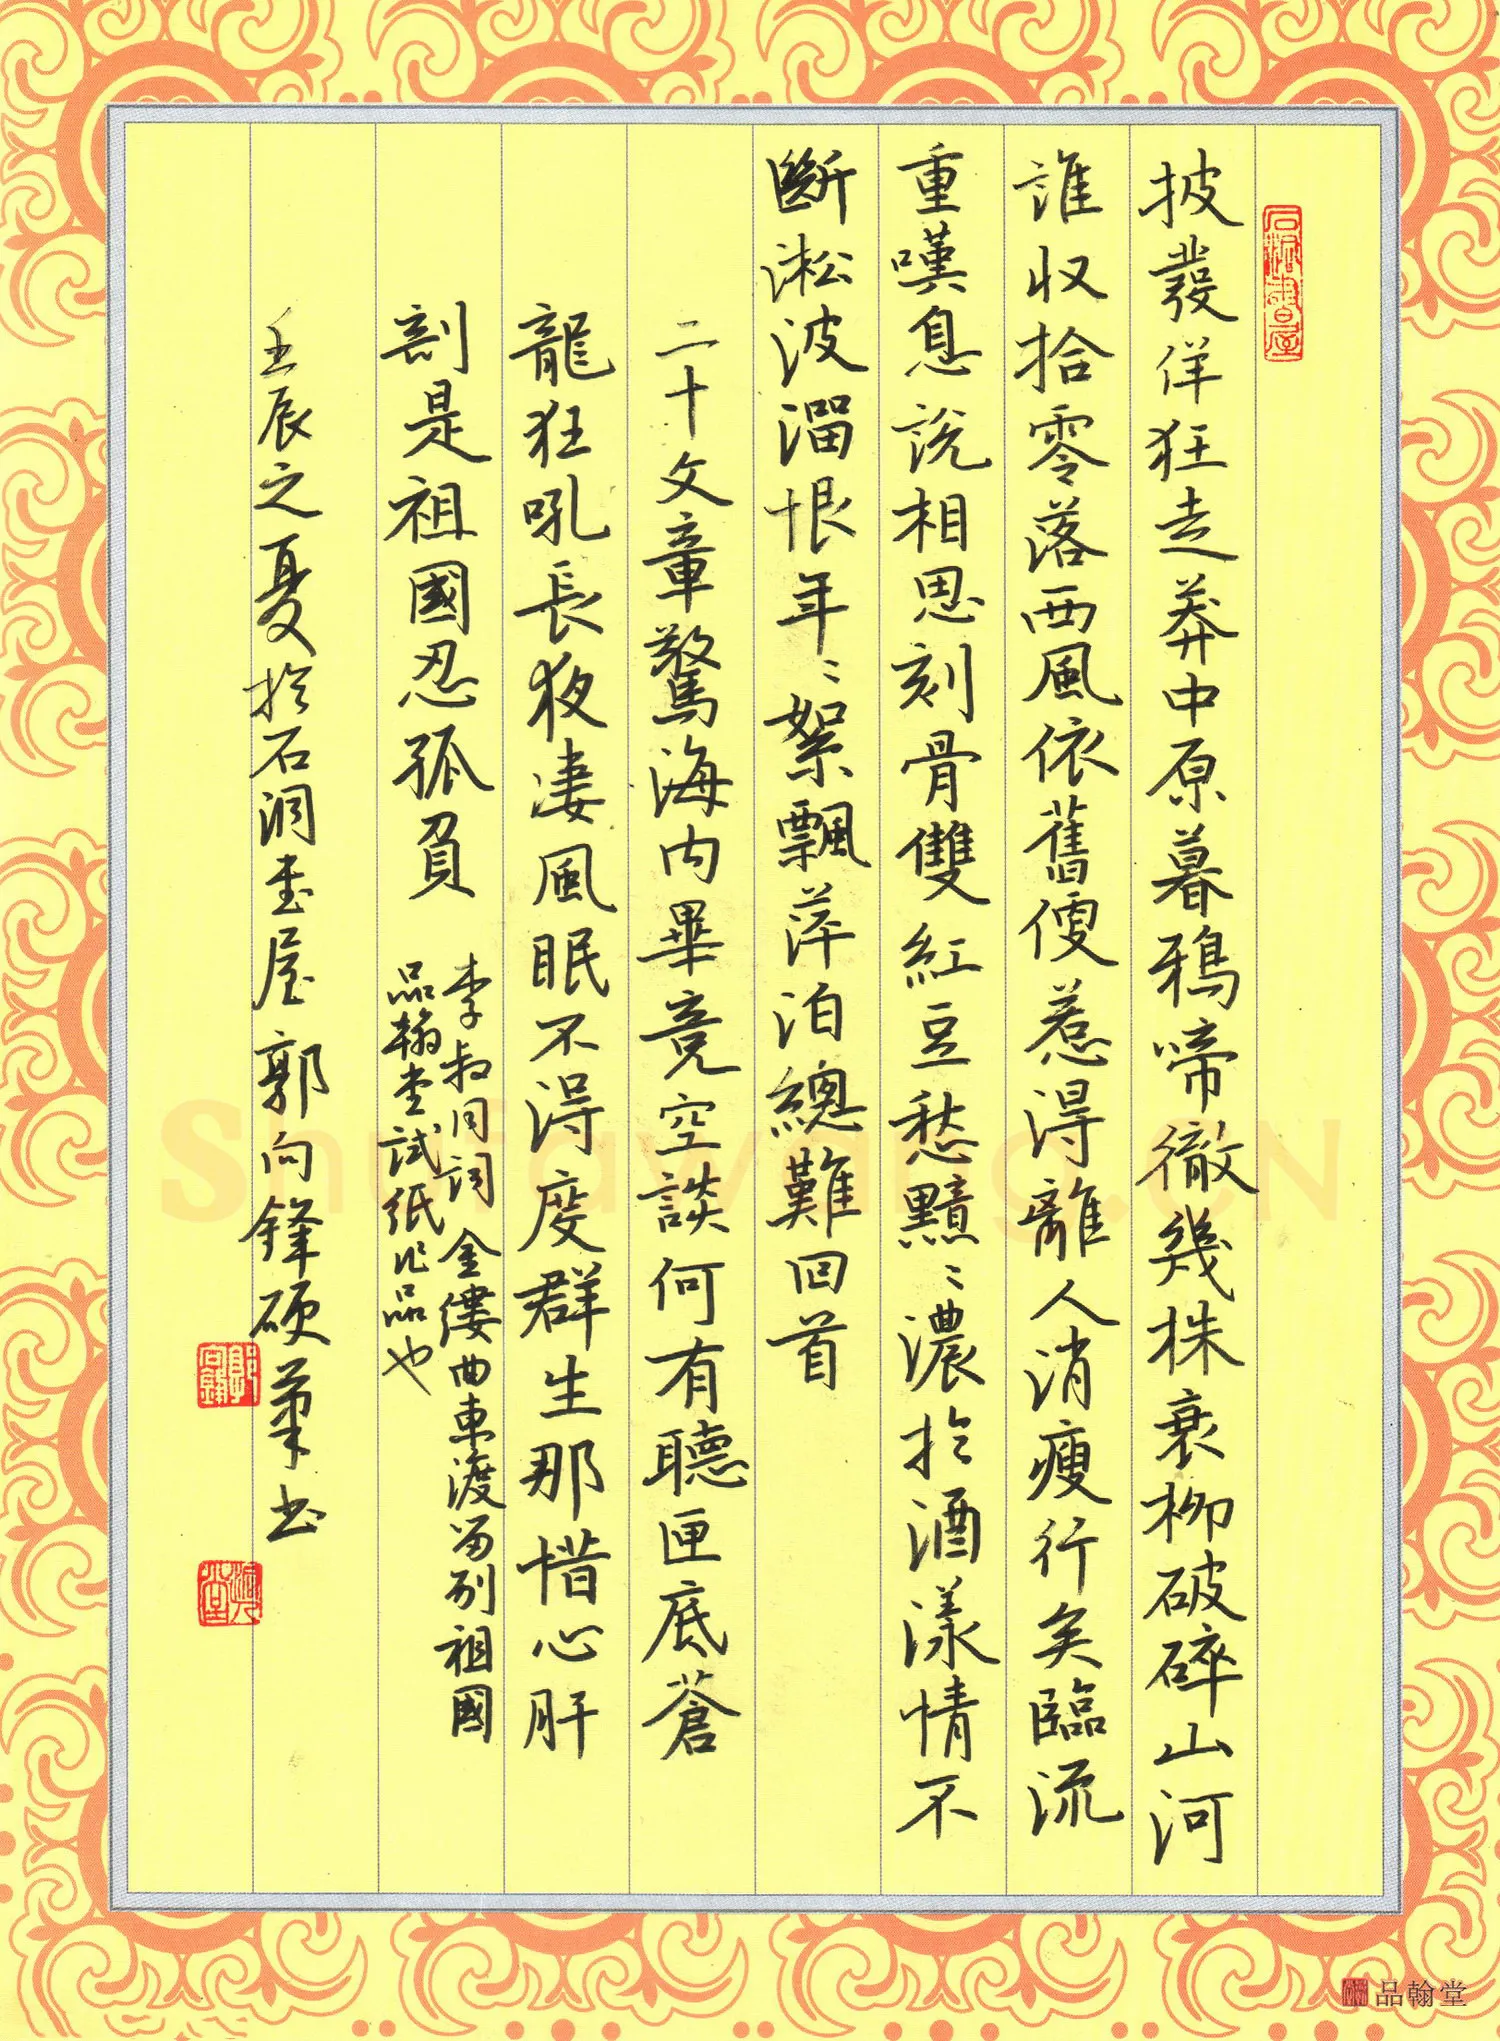 披發佯狂走莽中原暮鴉啼徹幾株衰柳破碎山河
誰收拾零落西風依舊便惹得離人消瘦行矣臨流
重嘆息說相思刻骨雙紅豆愁黯〻濃於酒漾情不
斷淞波溜恨年〻絮飄萍泊總難回首
二十文章驚海內畢竟空談何有聽匣底蒼
龍狂吼長夜淒風眠不得度群生那惜心肝
剖是祖國忍孤負
李叔同詞 金縷曲東渡留別祖國
品翰堂試紙作品也
壬辰之夏於石澗書屋郭向鋒硬筆書
品翰堂
Shufawang.CN